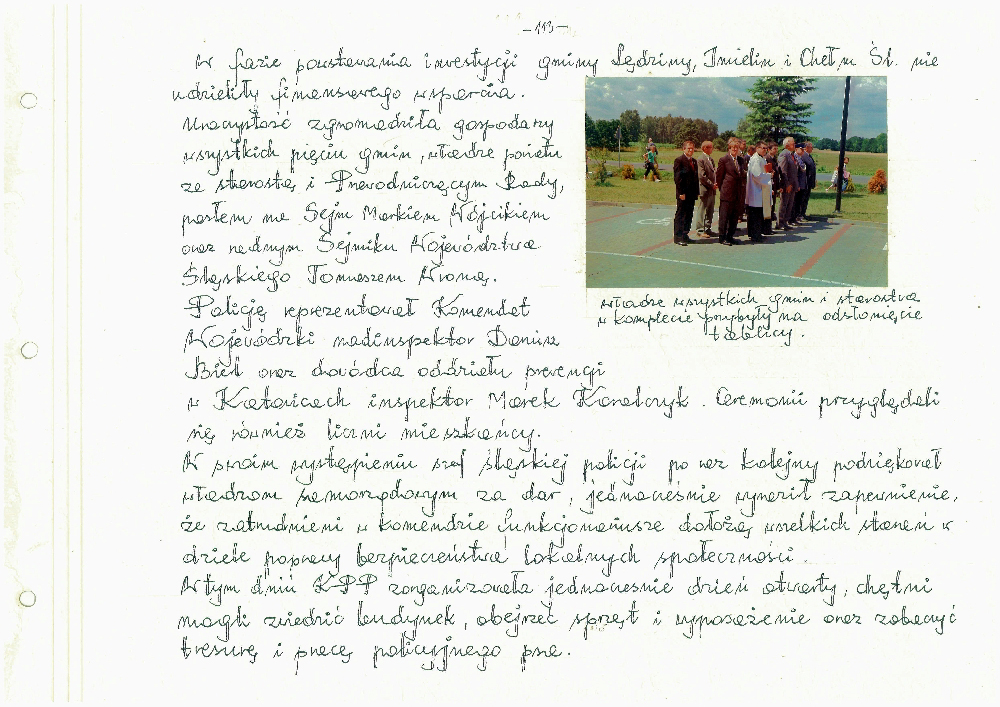 -113-
W fazie powstawania inwestycji gminy Lędziny, Imielin i Chełm Śl. nie
udzieliły finansowego wsparcia.
Uroczystość zgromadziła gospodarzy
wszystkich pięciu gmin, władze powiatu
ze starostą i Przewodniczącym Rady,
posłem na Sejm Markiem Wójcikiem
oraz radnym Sejmiku Województwa
Śląskiego Tomaszem Wroną.
Policję reprezentował Komendat
Wojewódzki nadinspektor Dariusz
Biel oraz dowódca oddziału prewencji
w Katowicach inspektor Marek Kanalczyk. Ceremonii przyglądali
się również liczni mieszkańcy.
W swoim wystąpieniu szef śląskiej policji po raz kolejny podziękował
władzom samorządowym za dar, jednocześnie wyraził zapewnienie,
że zatrudnieni w komendzie funkcjonariusze dołożą wszelkich starań w
dziele poprawy bezpieczeństwa lokalnych społeczności.
W tym dniu KPP zorganizowała jednocześnie dzień otwarty, chętni
mogli zwiedzić budynek, obejrzeć sprzęt i wyposażenie oraz zobaczyć
tresurę i pracę policyjnego psa.
władze wszystkich gmin i starostwa
w komplecie przybyły na odsłonięcie
tablicy.